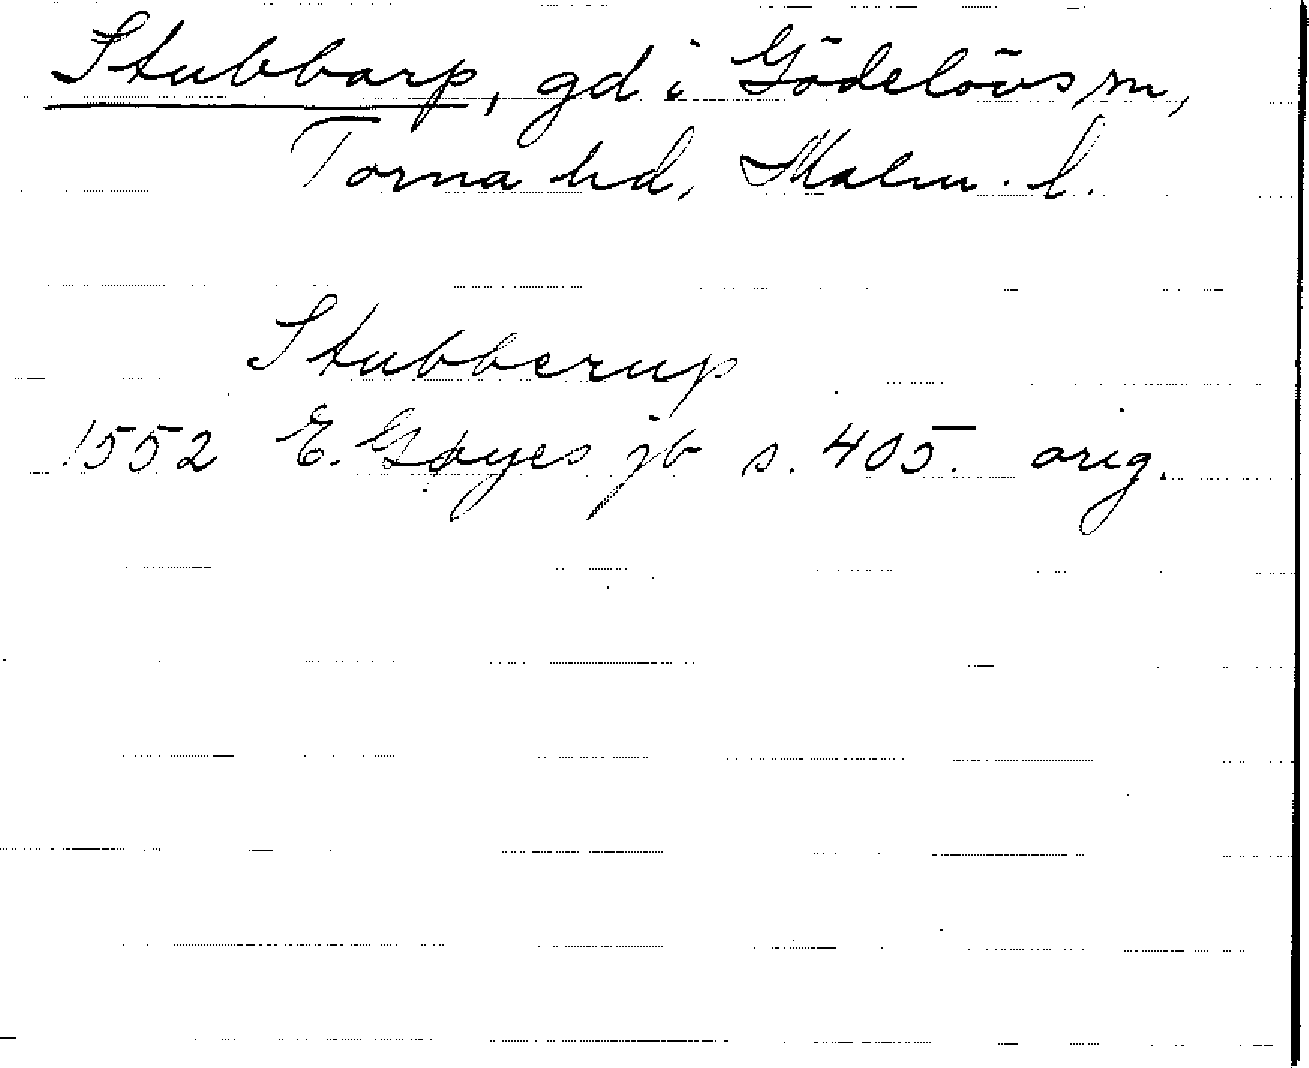 Stubbarp, gd i Gödelövs sn,
Torna hd, Malm. l.
Stubberup
1552 E. Gøyes jb s. 405. orig.